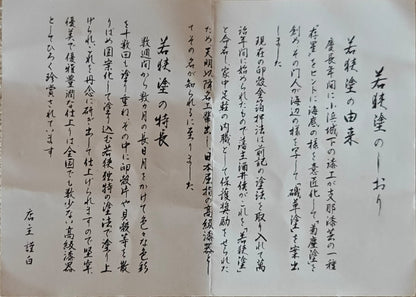 若狭塗のしおり
若狭塗の由来
慶長年間に小浜城下の漆工が支那漆芸の一種
「存星」をヒントに海底の様を意匠化して、菊塵塗を
創め、その門人が海辺の様を写して「磯草塗」を案出
しました
現在の卵殻金箔押法は前記の塗法を取り入れて萬
治年間に始められたもので、藩主酒井侯がこれを「若狭塗」
と命名し、家中足軽の内職として保護奨励をせられた
ため天明以降名工輩出し、日本屈指の高級漆器とし
てその名が知られるに至りました
若狭塗の特長
数週間から数ヶ月の長日月をかけて色々な色彩
を十数回も塗り重ね、その中に卵殻片や貝殻等を散
りばめ図案化して塗り込む若狭独特の塗法で塗り上
げられ、これを丹念に研ぎ出して仕上げられますので堅牢
優美で優雅豊潤な仕上りは全国でも数少ない高級漆器
としてひろく珍賞されています
店主謹白